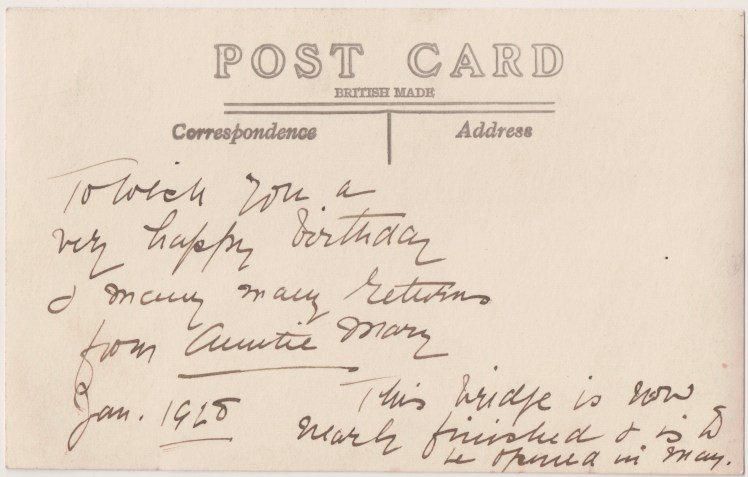 POST CARD
BRITISH MADE
Correspondence
Address
To wish you a
very happy birthday
& many many returns
from Auntie Mary
Jan. 1928
This bridge is now
nearly finished & is to
be opened in May.